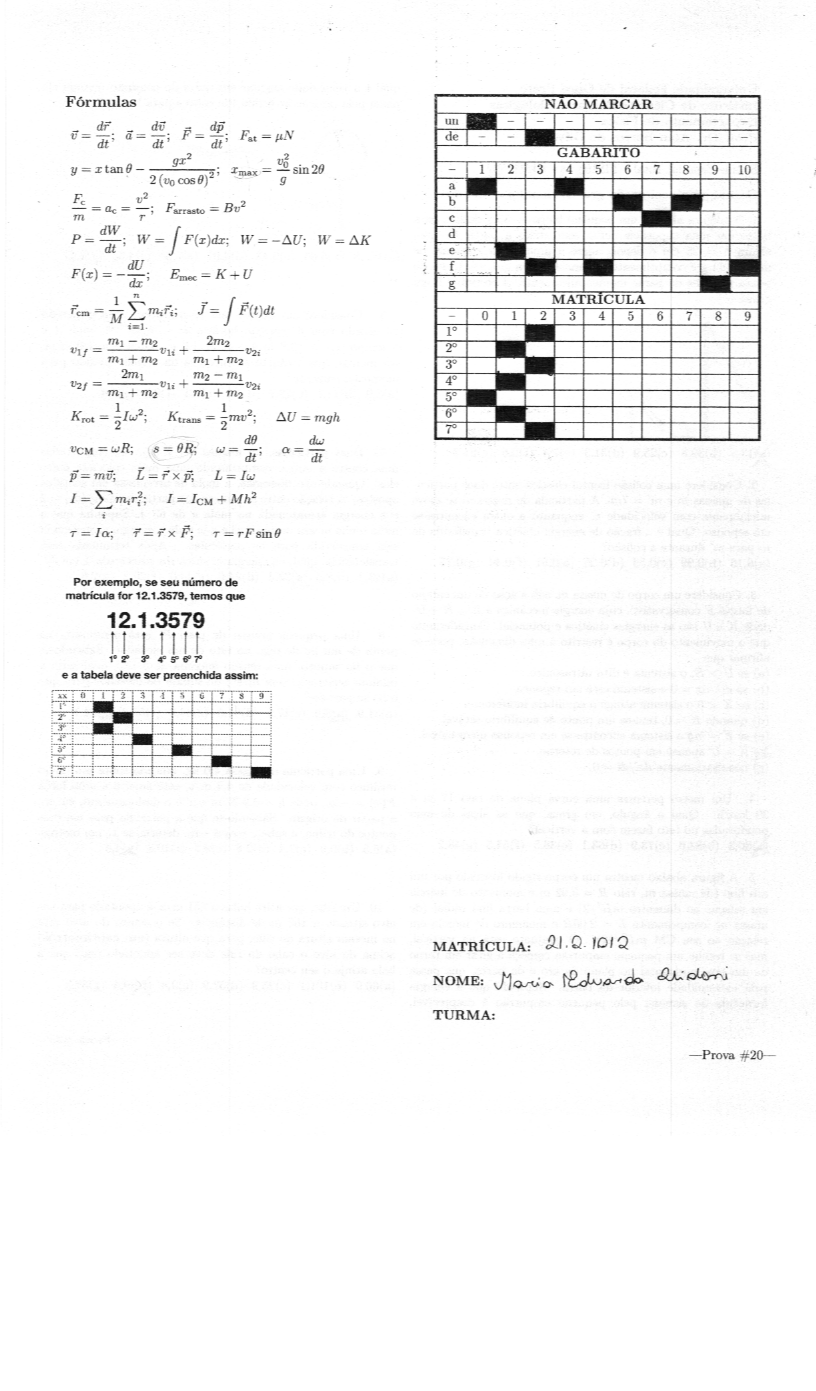 Fórmulas
v⃗ = dr⃗/dt; a⃗ = dv⃗/dt; F⃗ = dp⃗/dt; F_at = μN
y = x tan θ − gx²/(2 (v₀ cos θ)²); x_max = v₀²/g sin 2θ
F_c/m = a_c = v²/r; F_arrasto = Bv²
P = dW/dt; W = ∫ F(x)dx; W = −ΔU; W = ΔK
F(x) = −dU/dx; E_mec = K + U
r⃗_cm = 1/M ∑_{i=1}^{n} m_i r⃗_i; J⃗ = ∫ F⃗(t)dt
v_1f = (m₁ − m₂)/(m₁ + m₂) v_1i + 2m₂/(m₁ + m₂) v_2i
v_2f = 2m₁/(m₁ + m₂) v_1i + (m₂ − m₁)/(m₁ + m₂) v_2i
K_rot = 1/2 Iω²; K_trans = 1/2 mv²; ΔU = mgh
v_CM = ωR; s = θR; ω = dθ/dt; α = dω/dt
p⃗ = mv⃗; L⃗ = r⃗ × p⃗; L = Iω
I = ∑_i m_i r_i²; I = I_CM + Mh²
τ = Iα; τ⃗ = r⃗ × F⃗; τ = rF sin θ
Por exemplo, se seu número de
matrícula for 12.1.3579, temos que
12.1.3579
1º 2º 3º 4º 5º 6º 7º
e a tabela deve ser preenchida assim:
xx 0 1 2 3 4 5 6 7 8 9
1º
2º
3º
4º
5º
6º
7º
NÃO MARCAR
un – – – – – – – – –
de – – – – – – – – –
GABARITO
– 1 2 3 4 5 6 7 8 9 10
a
b
c
d
e
f
g
MATRÍCULA
– 0 1 2 3 4 5 6 7 8 9
1º
2º
3º
4º
5º
6º
7º
MATRÍCULA: 21.2.1012
NOME: Maria Eduarda
TURMA:
—Prova #20—